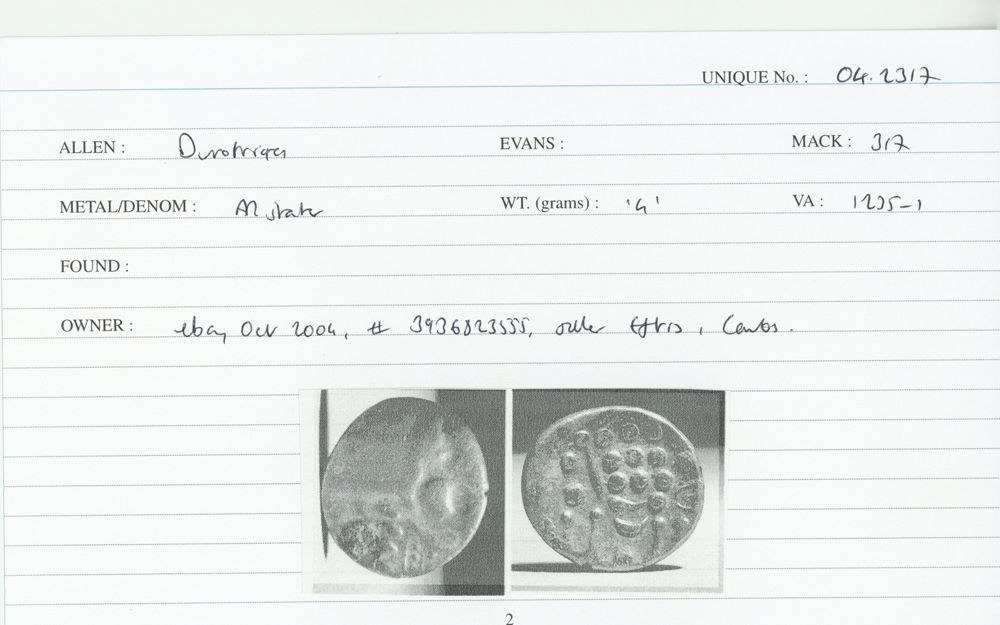 UNIQUE No. : 04.2317
ALLEN : Durotriges EVANS : MACK : 317
METAL/DENOM : AR stater WT. (grams) : '4' VA : 1235-1
FOUND :
OWNER : ebay Oct 2004, # 3936823555, seller , Cambs.
2